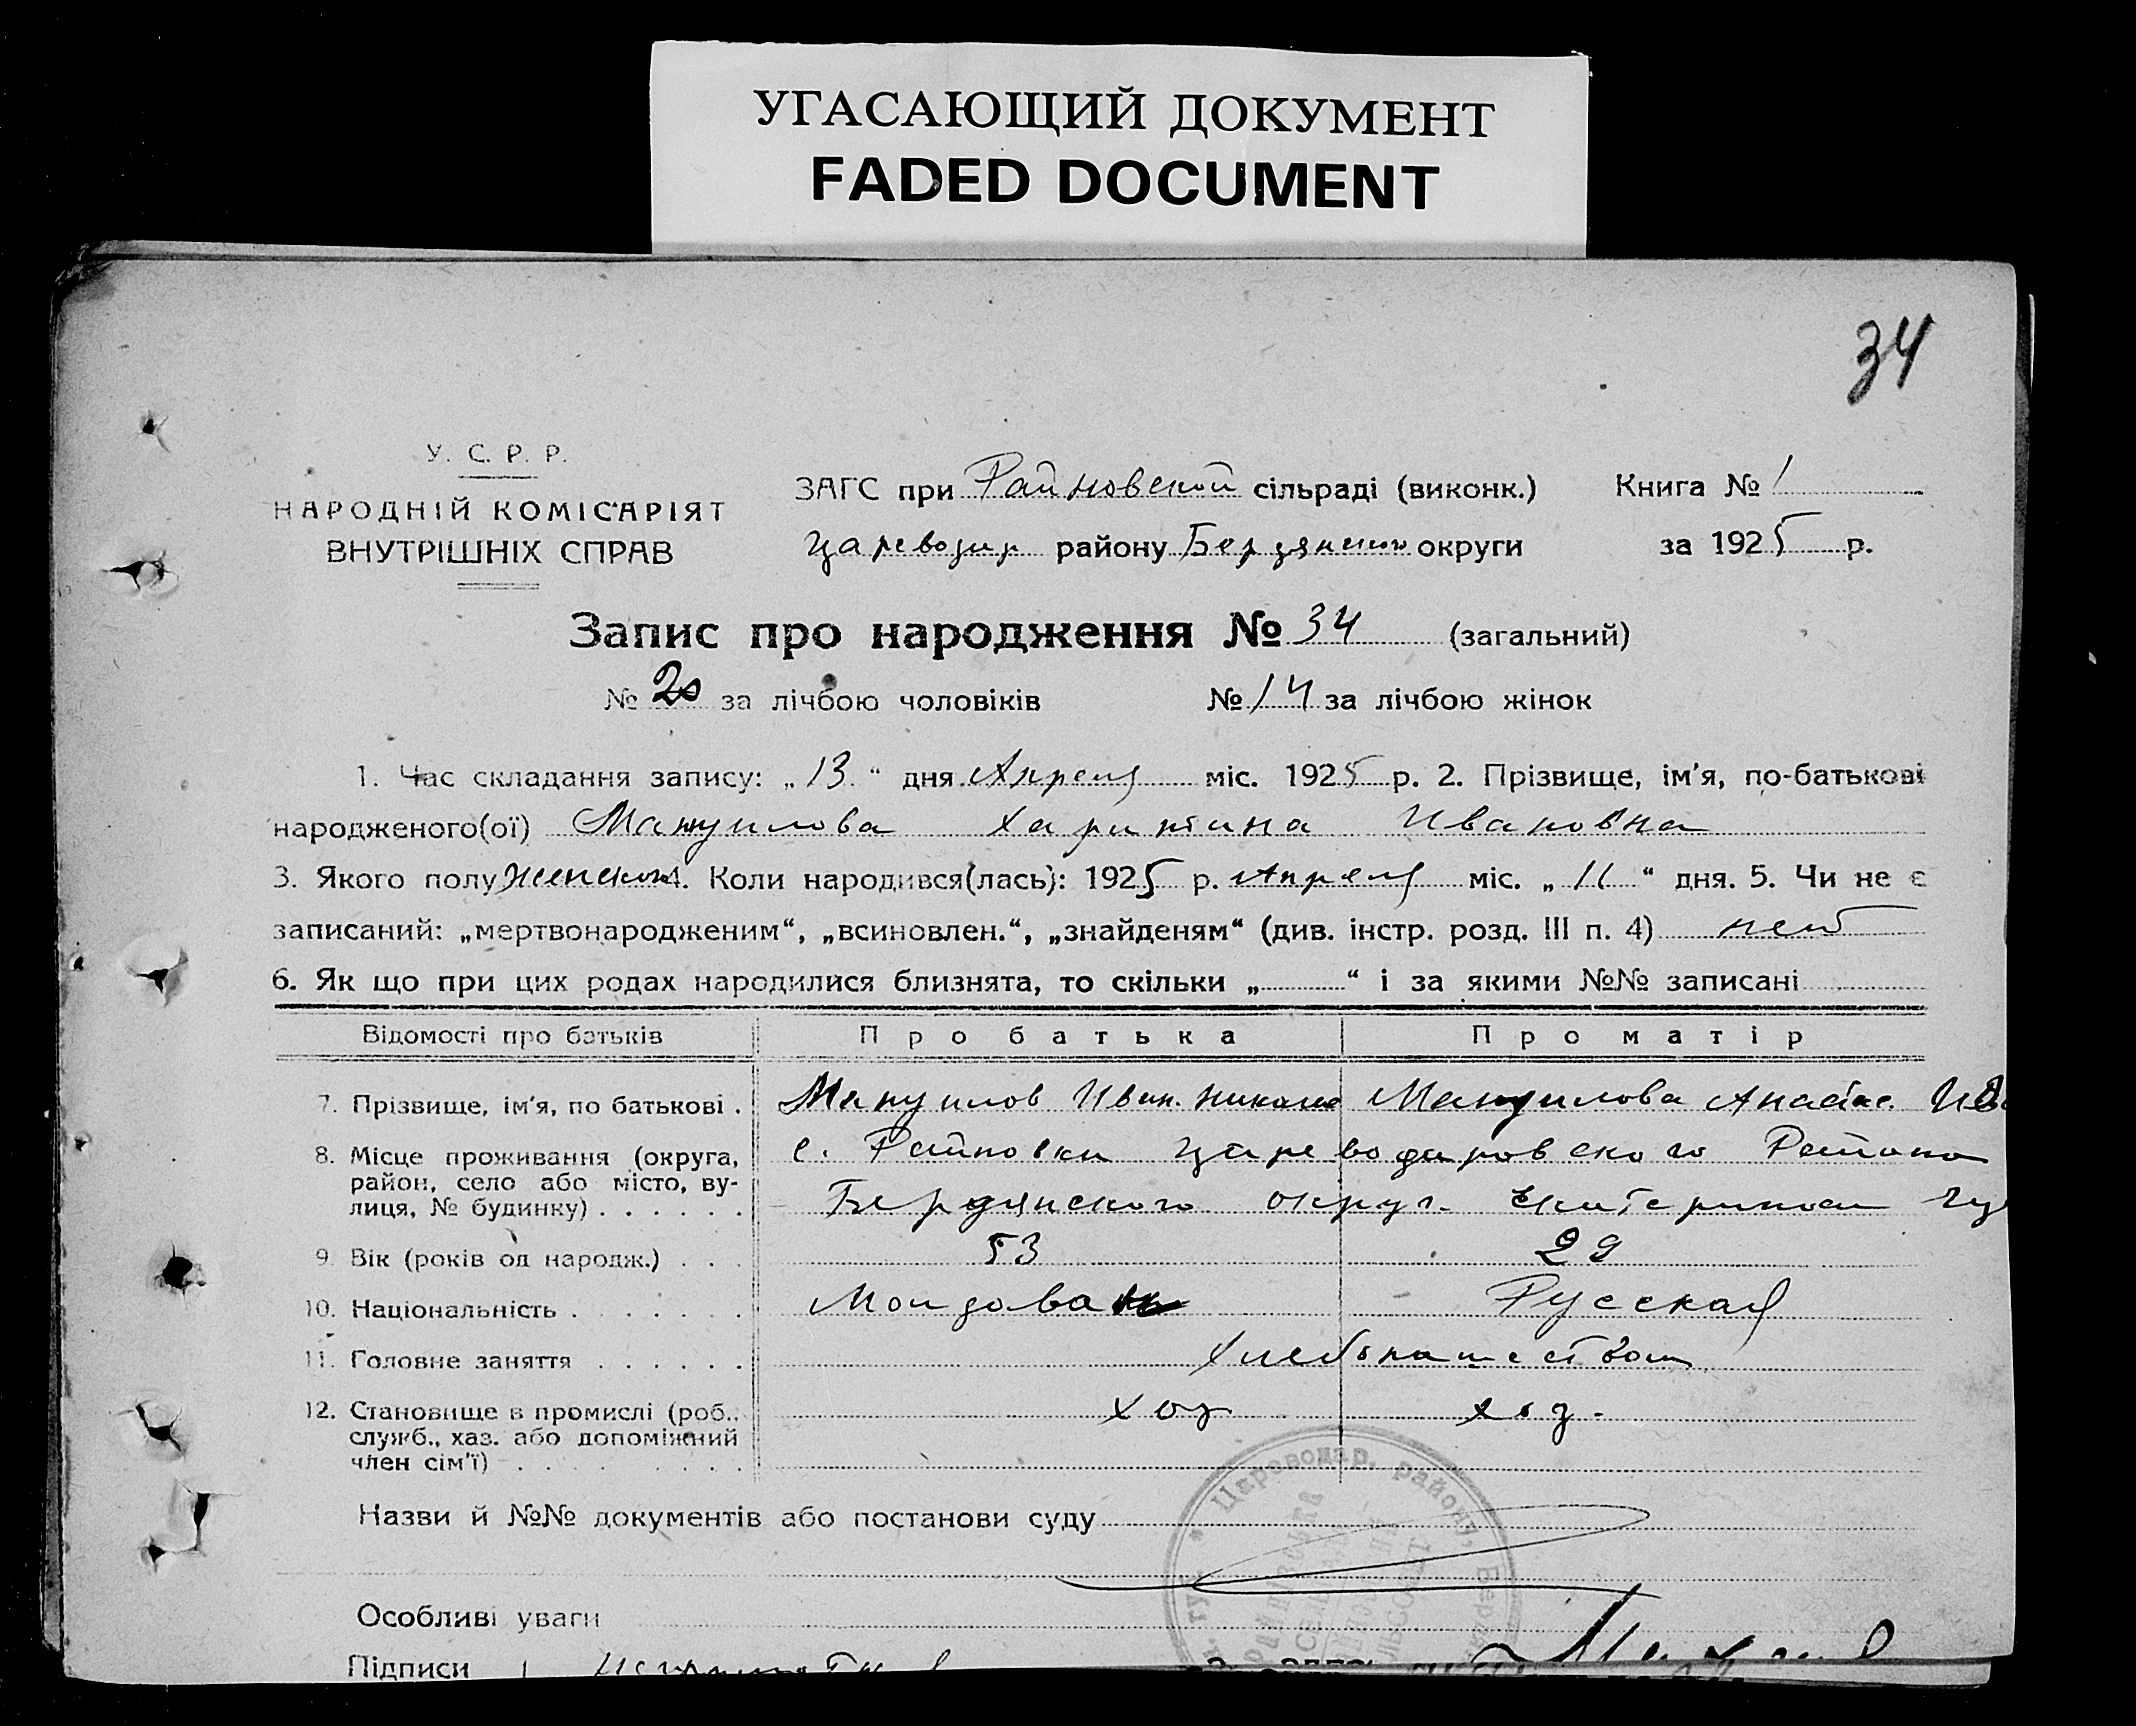 УГАСАЮЩИЙ ДОКУМЕНТ
FADED DOCUMENT
34
У. С. Р. Р.
НАРОДНІЙ КОМІСАРІЯТ
ВНУТРІШНІХ СПРАВ
ЗАГС при Райновской сільраді (виконк.) Книга № 1
Цареводар району Бердянском округи за 1925 р.
Запис про народження № 34 (загальний)
№ 20 за лічбою чоловіків № 14 за лічбою жінок
1. Час складання запису: „ 13 “ дня Апреля міс. 1925 р. 2. Прізвище, ім’я, по-батькові
народженого(ої) Мануилова Харитина Ивановна
3. Якого полу женском 4. Коли народився(лась): 1925 р. Апреля міс. „ 11 “ дня. 5. Чи не є
записаний: „мертвонародженим“, „всиновлен.“, „знайденям“ (див. інстр. розд. III п. 4) нет
6. Як що при цих родах народилися близнята, то скільки „ “ і за якими №№ записані
Відомості про батьків Про батька Про матір
7. Прізвище, ім’я, по батькові . Мануилов Иван. Никола Мануилова Анастас. Ив
8. Місце проживання (округа, с. Райновки Цареводаровского Района
район, село або місто, ву-
лиця, № будинку) . . . . . . Бердянского округ. Екатеринос гу
9. Вік (років од народж.) . . . 53 29
10. Національність . . . . . . . Молдован Русская
11. Головне заняття . . . . . . Хлебопашеством
12. Становище в промислі (роб., хоз хоз.
служб., хаз. або допоміжний
член сім’ї) . . . . . . . . .
Назви й №№ документів або постанови суду
Особливі уваги
Підписи
Цареводар. району, Бердян